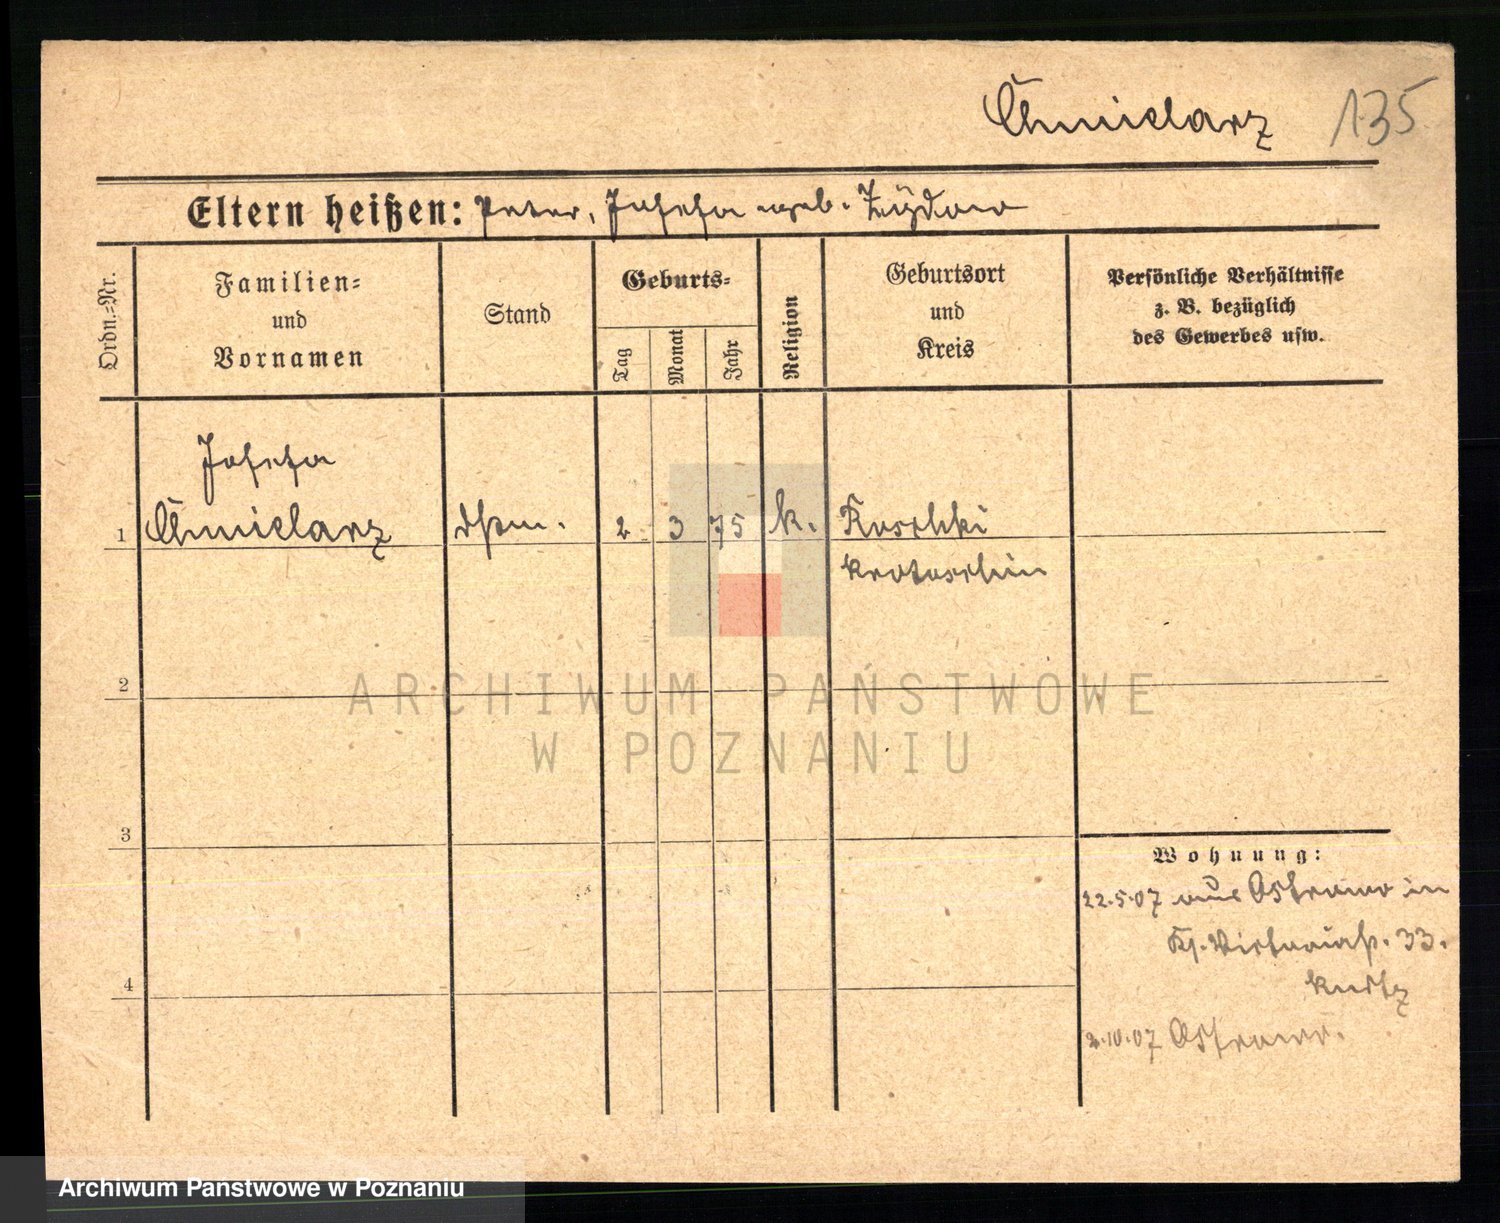 Chmielarz 135
Eltern heißen: Peter, Josefa geb.
Ordn.-Nr.
Familien-
und
Vornamen
Stand
Geburts-
Tag
Monat
Jahr
Religion
Geburtsort
und
Kreis
Persönliche Verhältnisse
z. B. bezüglich
des Gewerbes usw.
Josefa
1 Chmielarz 2 3 75 k. Roschki
Krotoschin
2
3
4
Wohnung:
22.5.07 aus Ostrowo in
Viktoriastr. 33.
2.10.07 Ostrowo.
ARCHIWUM PAŃSTWOWE
W POZNANIU
Archiwum Państwowe w Poznaniu